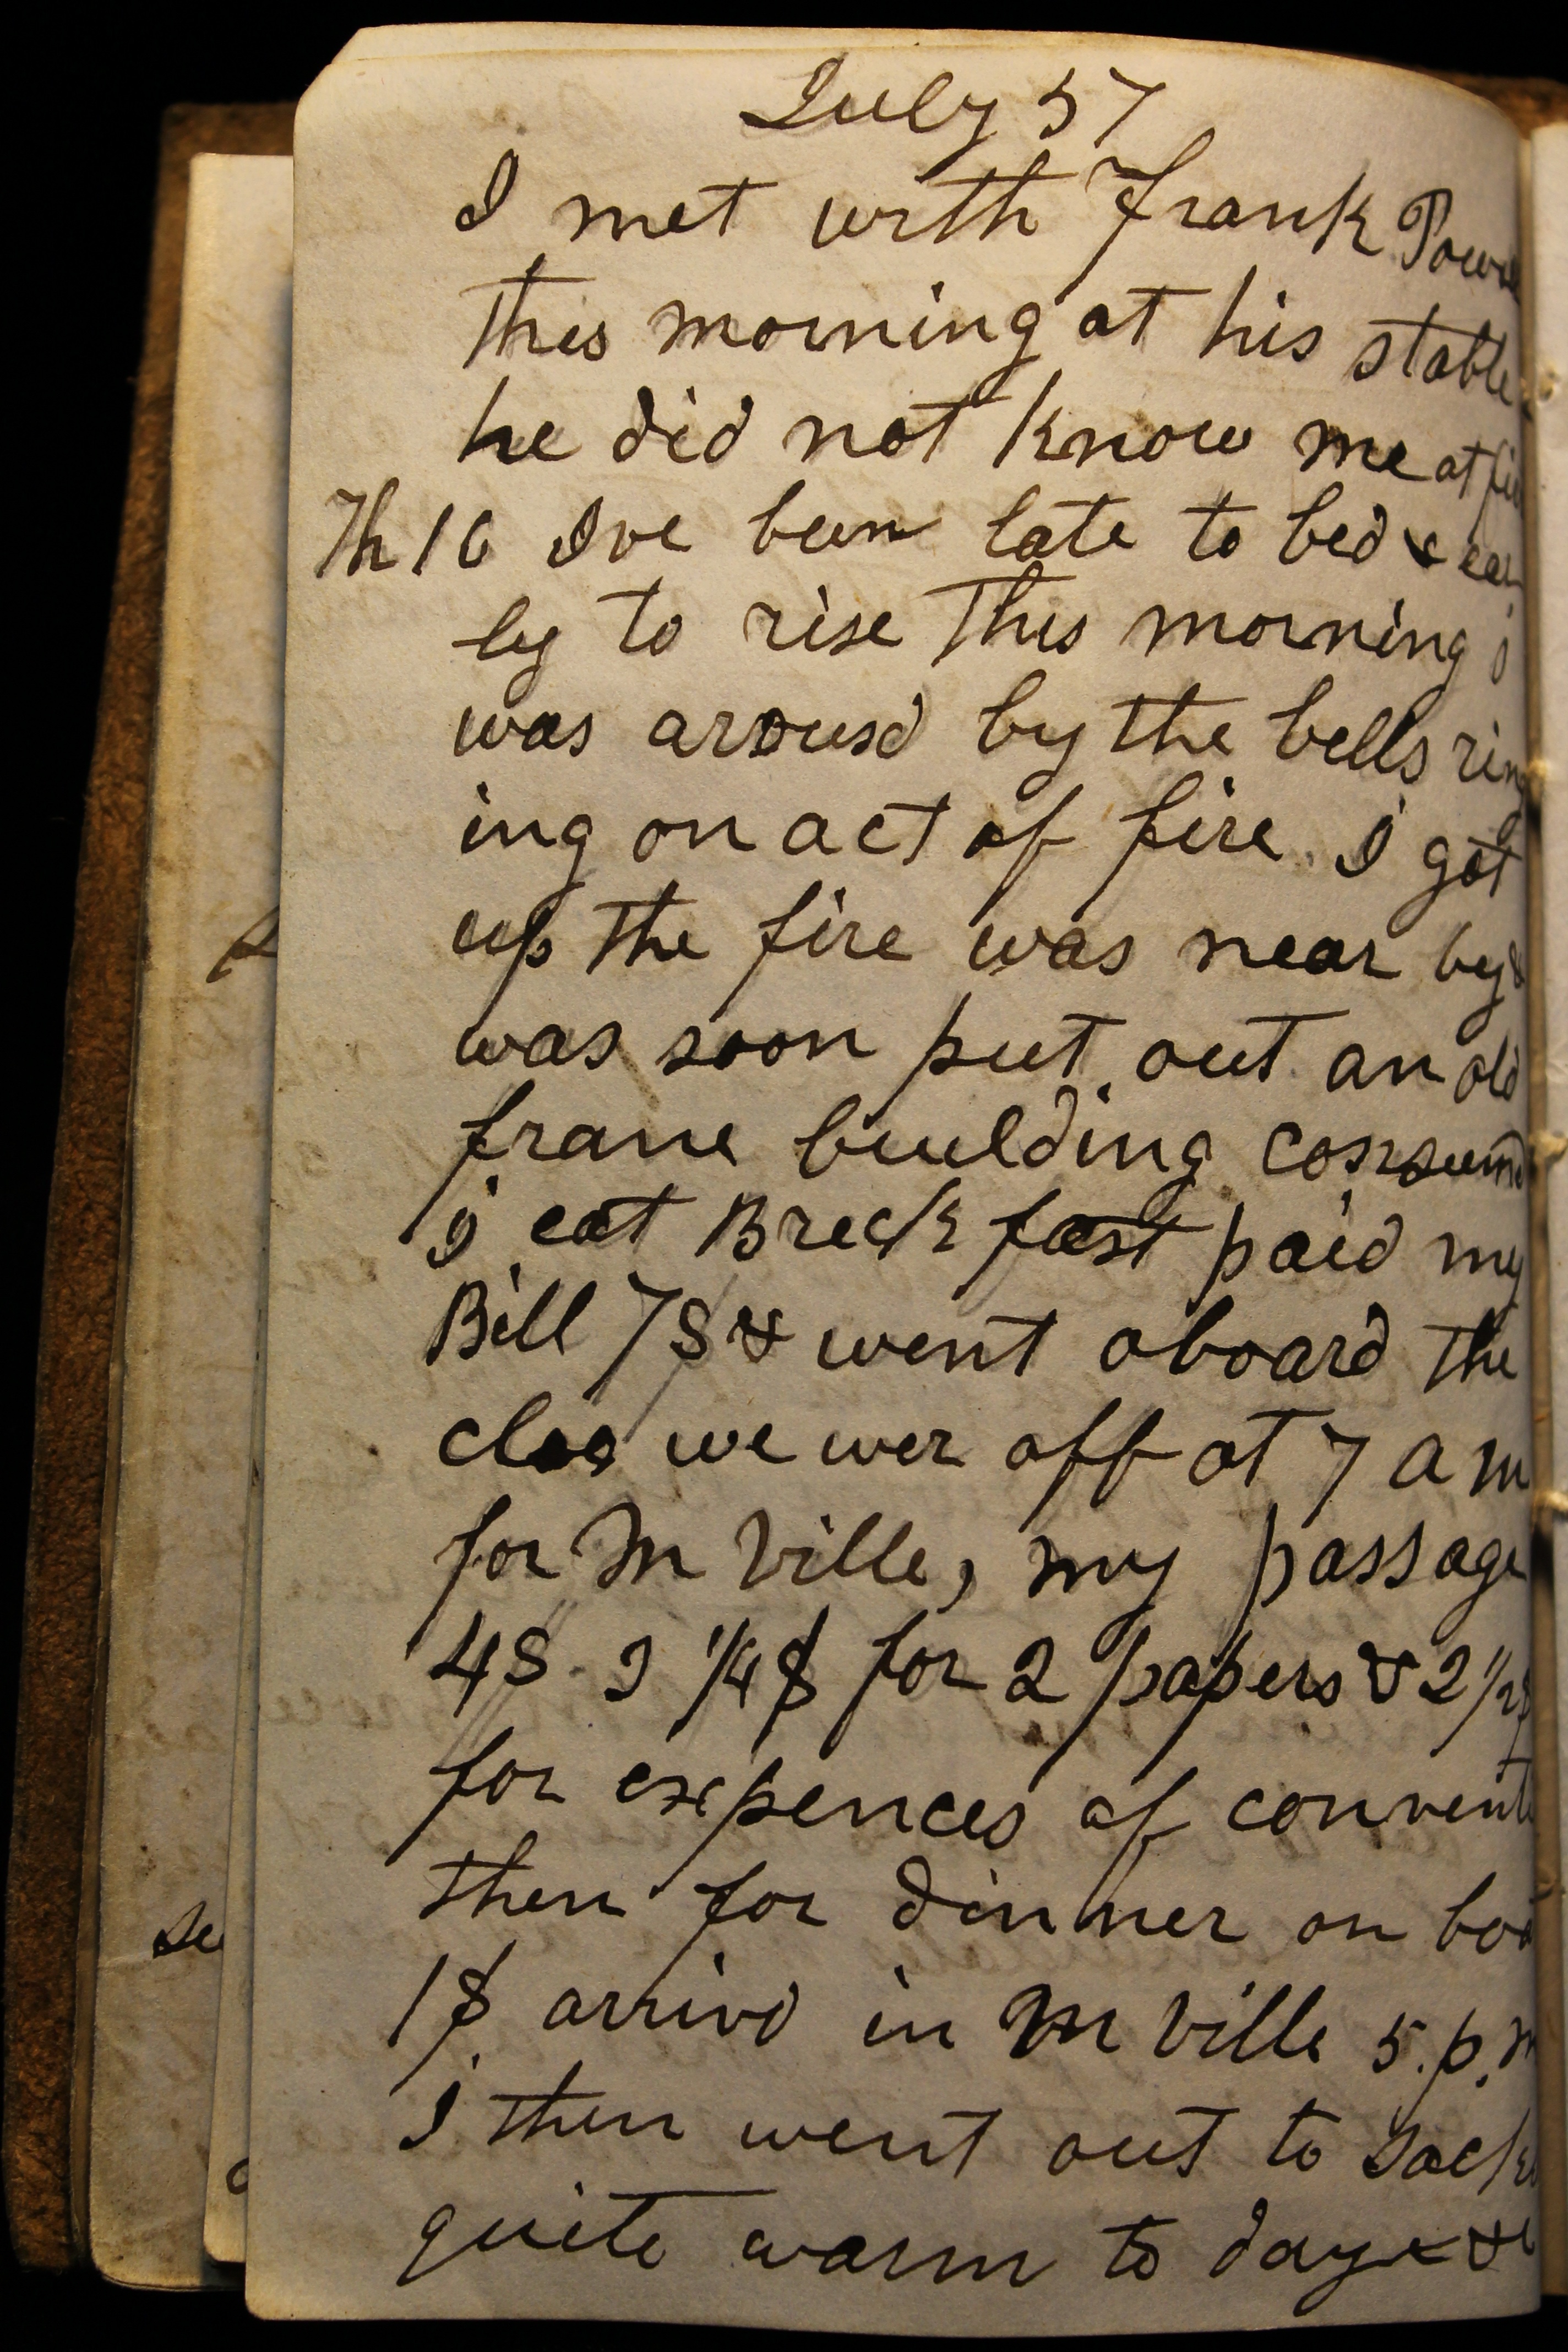 July 57
I met with Frank
this morning at his stable
he did not know me at
Th 16 Ive been late to bed & ear
ly to rise this morning i
was arousd by the bells ring
ing on act of fire. I got
up the fire was near by &
was soon put out an old
frame building consumd
I eat Breckfast paid my
Bill 7$ & went aboard the
we wer off at 7 a m
for M Ville, my passage
4$ I 1/4$ for 2 papers & 2 1/2$
for expences of
then for dinner on boat
1$ arrivd in M Ville 5. p. m
I then went out to
quite warm to day &
se